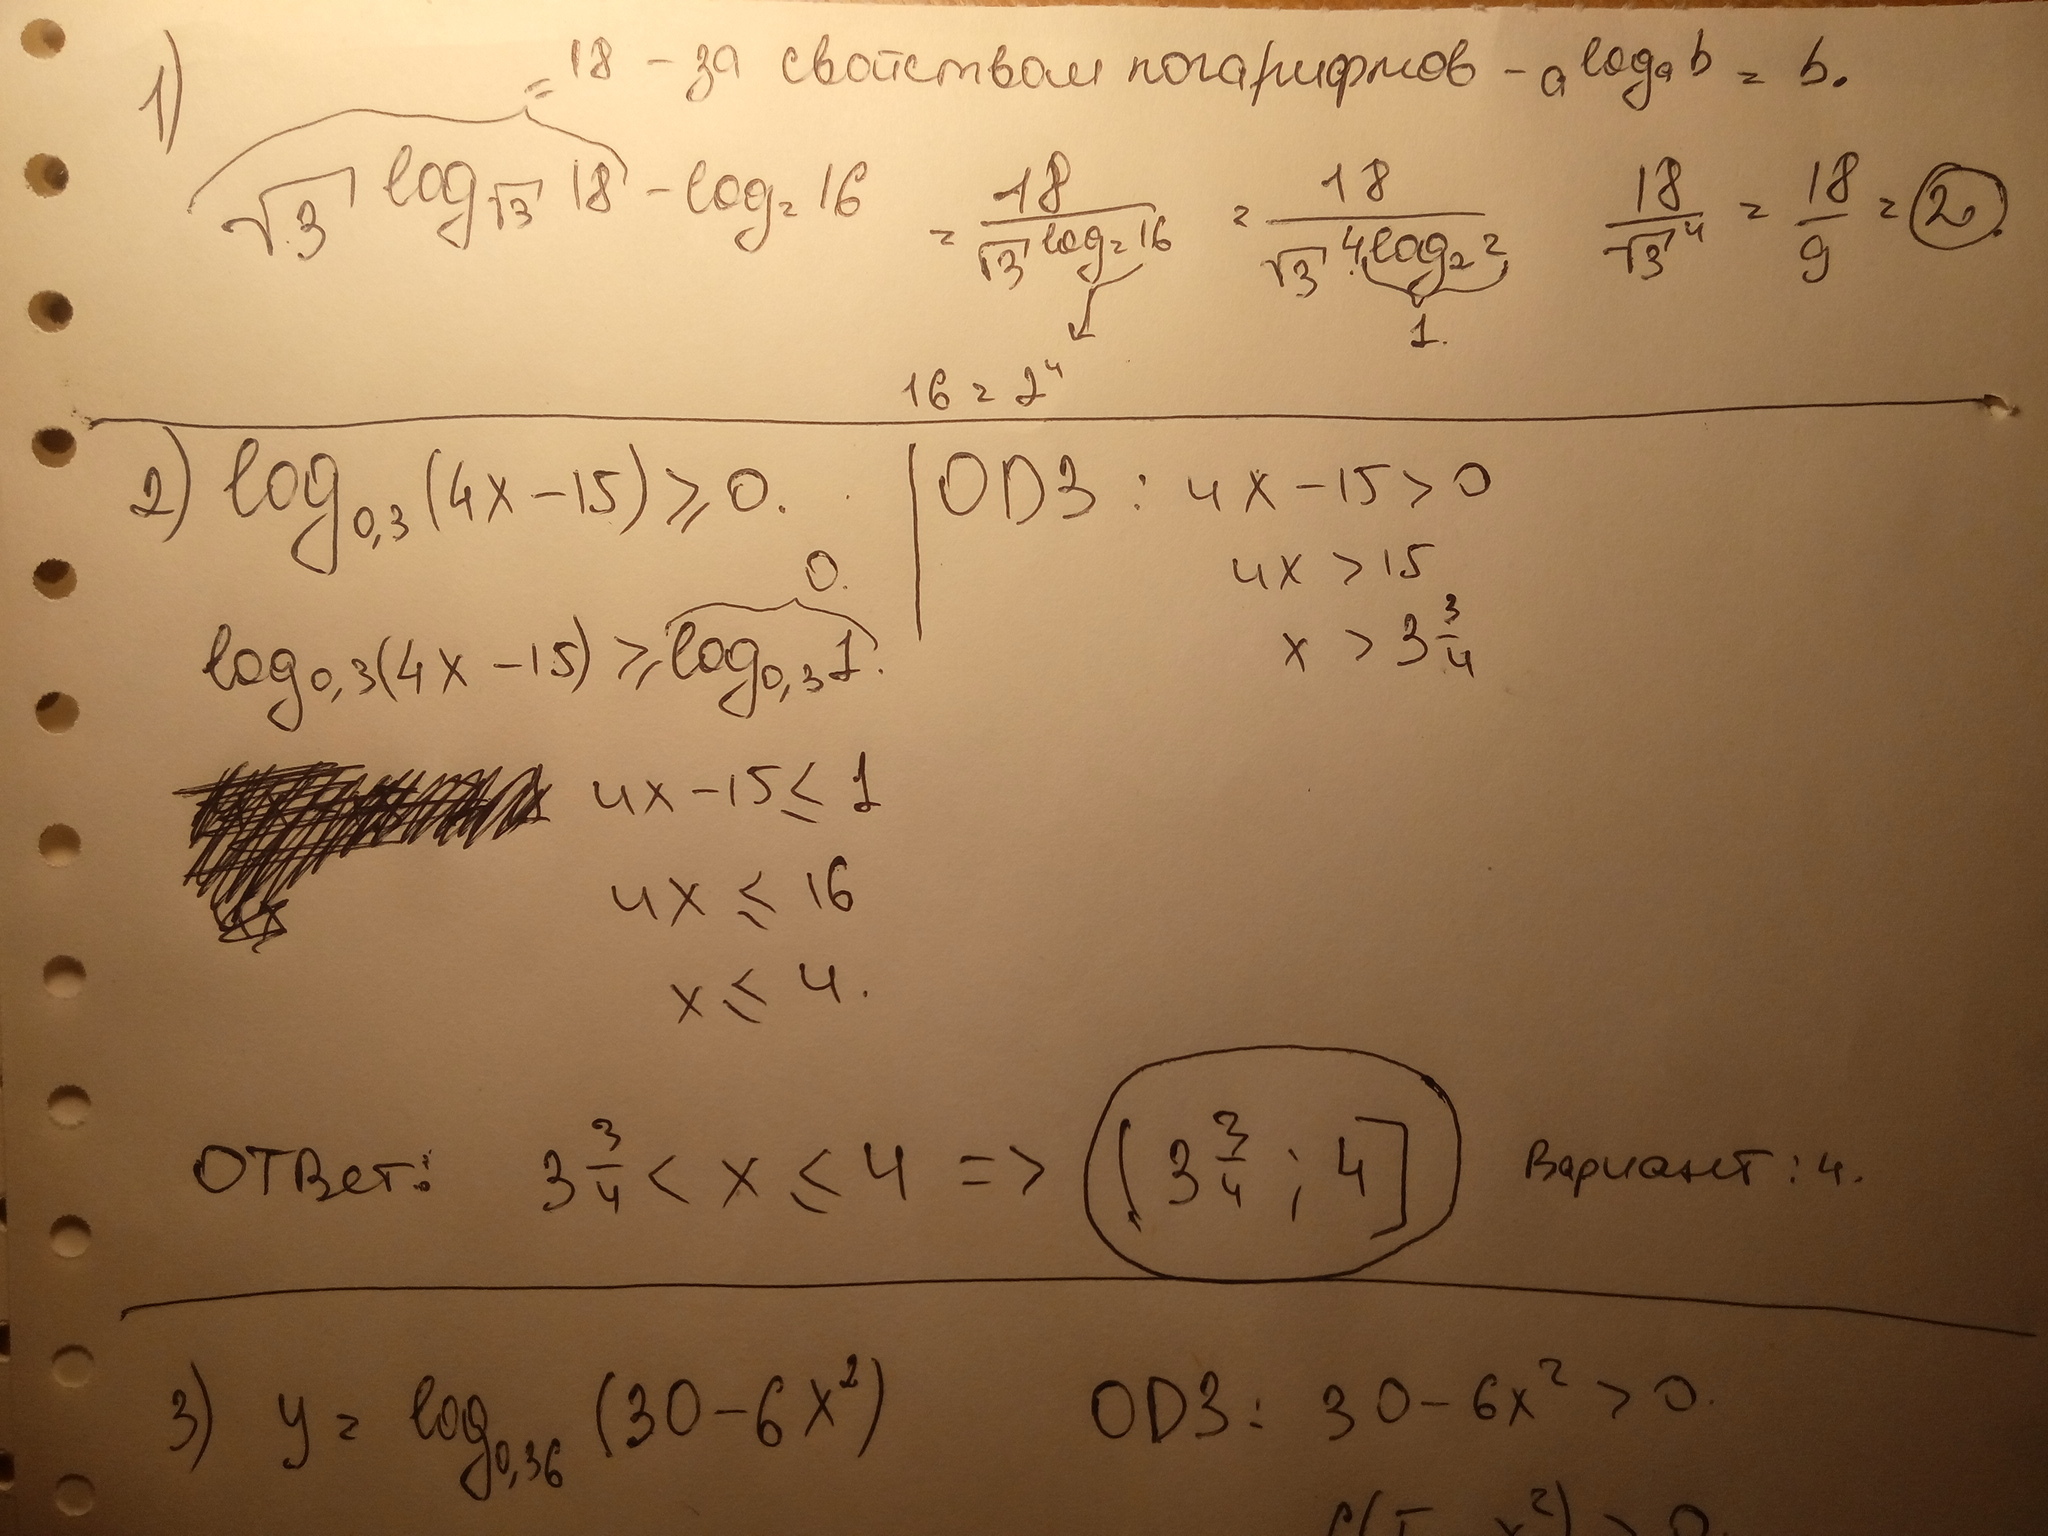 1) = 18 – за свойством логарифмов – a^{log_a b} = b.
√3^{log_{√3} 18 – log_2 16} = 18/√3^{log_2 16} = 18/√3^{4 log_2 2} 18/√3^4 = 18/9 = 2.
1.
16 = 2^4
2) log_{0,3}(4x – 15) ⩾ 0. | OD3 : 4x – 15 > 0
0. 4x > 15
log_{0,3}(4x – 15) ⩾ log_{0,3} 1. x > 3 3/4
4x – 15 ⩽ 1
4x ⩽ 16
x ⩽ 4.
ОТВет: 3 3/4 < x ⩽ 4 => (3 3/4 ; 4] Вариант : 4.
3) y = log_{0,36} (30 – 6x²) OD3 : 30 – 6x² > 0.